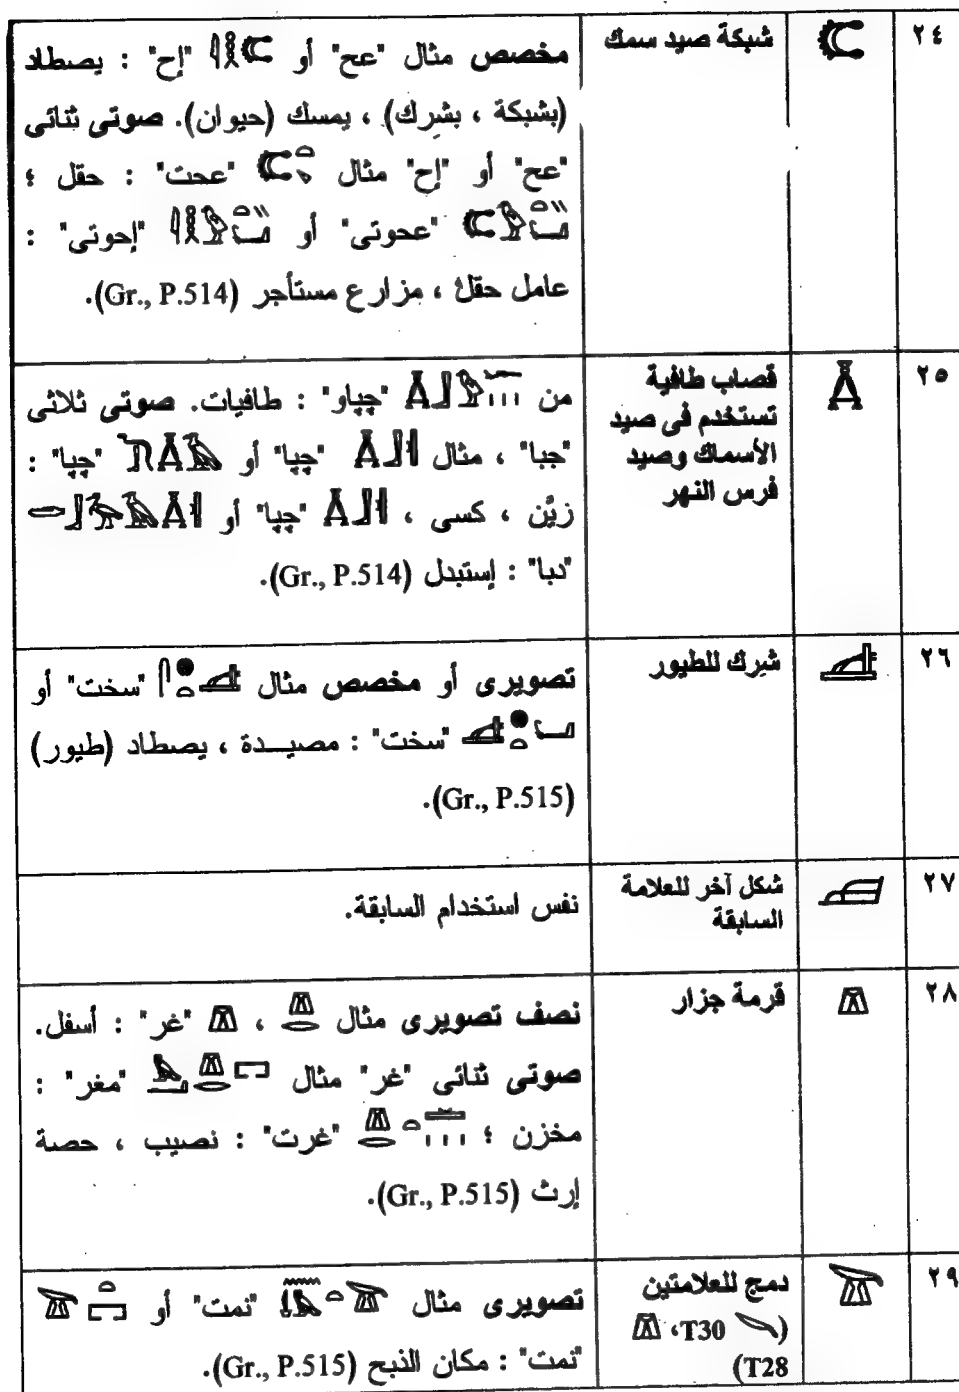 ٢٤
شبكة صيد سمك
مخصص مثال "عح" أو "إح" : يصطاد
(بشبكة ، بشرك) ، يمسك (حيوان). صوتى ثنائى
"عح" أو "إح" مثال "عحت" : حقل ؛
"عحوتى" أو "إحوتى" :
عامل حقل ، مزارع مستأجر (Gr., P.514).
٢٥
قصاب طافية
تستخدم فى صيد
الأسماك وصيد
فرس النهر
من "چباو" : طافيات. صوتى ثلاثى
"جبا" ، مثال "چبا" أو "چبا" :
زيَّن ، كسى ، "چبا" أو
"دبا" : إستبدل (Gr., P.514).
٢٦
شرك للطيور
تصويرى أو مخصص مثال "سخت" أو
"سخت" : مصيدة ، يصطاد (طيور)
(Gr., P.515).
٢٧
شكل آخر للعلامة
السابقة
نفس استخدام السابقة.
٢٨
قرمة جزار
نصف تصويرى مثال ، "غر" : أسفل.
صوتى ثنائى "غر" مثال "مغر" :
مخزن ؛ "غرت" : نصيب ، حصة
إرث (Gr., P.515).
٢٩
دمج للعلامتين
(T30،
T28)
تصويرى مثال "نمت" أو
"نمت" : مكان الذبح (Gr., P.515).